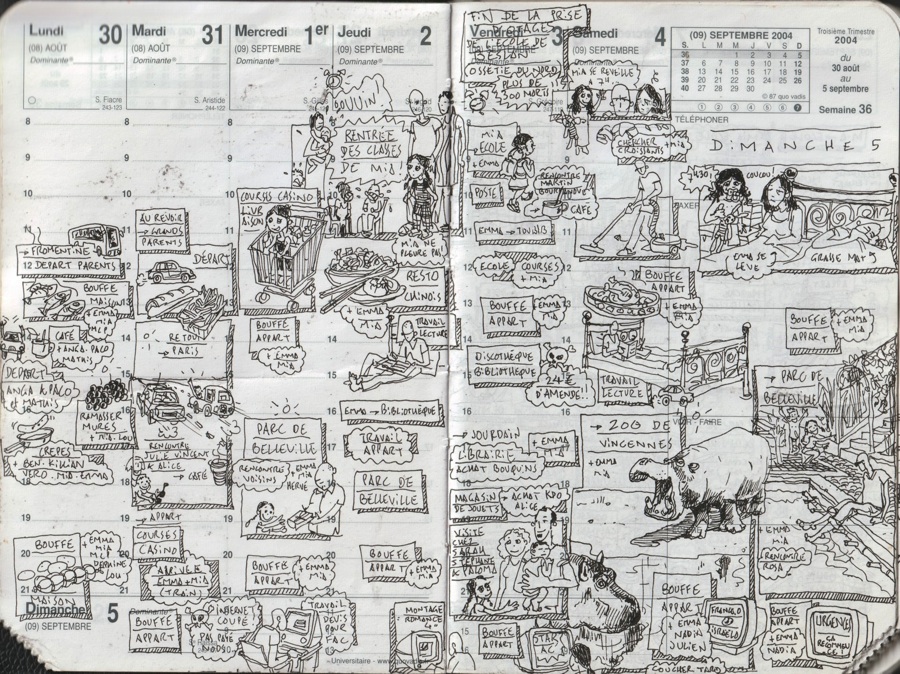 Lundi 30
(08) AOÛT
Dominante
S. Fiacre
243-123
8
9
10
11
→ FROMENTINE
12 DEPART PARENTS
BOUFFE
MAISON
+ EMMA
MIA
MCP
CAFÉ
+ ANCA-PACO
MATAIS
DEPART
ANCA & PACO
et MATAIS
RAMASSER
MURES
+ MIA-LOU
CREPES
+ BEN-KILIAN
VERO-MIA-EMMA
18
19
20
BOUFFE
+ EMMA
MIA
MCP
LOU
21
MAISON
Dimanche 5
(09) SEPTEMBRE
Mardi 31
(08) AOÛT
Dominante
S. Aristide
244-122
8
9
10
AU REVOIR
→ GRANDS
PARENTS
DÉPART
RETOUR
→ PARIS
RENCONTRE
JULIE VINCENT
& ALICE
→ CAFÉ
→ APPART
COURSES
CASINO
ARRIVÉE
EMMA+MIA
(TRAIN)
Dominante
BOUFFE
APPART
INTERNET
COUPÉ
PAS PAYÉ
NOOS
Mercredi 1er
(09) SEPTEMBRE
Dominante
8
9
10
COURSES CASINO
LIVR
AISON
BOUFFE
APPART
+ EMMA
MIA
PARC DE
BELLEVILLE
RENCONTRE
VOISINS
EMMA
MIA
HERVÉ
BOUFFE
APPART
+ EMMA
MIA
TRAVAIL
DEVIS
POUR
FAC
Universitaire - www.quovadis
Jeudi 2
(09) SEPTEMBRE
Dominante
BOUUIN!
RENTRÉE
DES CLASSES
DE MIA!
MIA NE
PLEURE PAS
RESTO
CHINOIS
+ EMMA
MIA
TRAVAIL
LECTURE
EMMA → BIBLIOTHÈQUE
TRAVAIL
APPART
PARC DE
BELLEVILLE
BOUFFE
APPART
+ EMMA
MIA
MONTAGE
ROMANCE
Vendredi 3
FIN DE LA PRISE
D'OTAGES
DE L'ÉCOLE DE
OSSETIE DU NORD
PLUS DE
300 MORTS
MIA
ÉCOLE
+ EMMA
POSTE
RENCONTRE
MARTIN
→ CAFÉ
EMMA → TOUBIB
ECOLE
COURSES
+ MIA
BOUFFE
APPART
+ EMMA
MIA
DISCOTHÈQUE
BIBLIOTHÈQUE
24 €
D'AMENDE!!
→ JOURDAIN
LIBRAIRIE
ACHAT BOUQUINS
+ EMMA
MIA
MAGASIN
DE JOUETS
→ ACHAT KDO
ALICE
VISITE
CHEZ
SARAH
STÉPHANE
& PALOMA
BOUFFE
APPART
START
AC
Samedi 4
(09) SEPTEMBRE
MIA SE REVEILLE
A 7H
CHERCHER
CROISSANTS
+ MIA
BOUFFE
APPART
+ EMMA
MIA
TRAVAIL
LECTURE
→ ZOO DE
VINCENNES
+ EMMA
MIA
BOUFFE
APPART
+ EMMA
NADIA
JULIEN
COUCHER TARD
(09) SEPTEMBRE 2004
S. L M M J V S D
36 1 2 3 4 5
37 6 7 8 9 10 11 12
38 13 14 15 16 17 18 19
39 20 21 22 23 24 25 26
40 27 28 29 30
© 87 quo vadis
① ② ③ ④ ⑤ ⑥ ⑦
Troisième Trimestre
2004
du
30 août
au
5 septembre
Semaine 36
TÉLÉPHONER
DIMANCHE 5
COUCOU!
EMMA SE
LÈVE
GRASSE MAT'
BOUFFE
APPART
+ EMMA
MIA
→ PARC DE
BELLEVILLE
VOIR - FAIRE
+ EMMA
MIA
RENCONTRE
ROSA
BOUFFE
APPART
+ EMMA
NADIA
URGENCES
ÇA
RECOMMEN
CE!